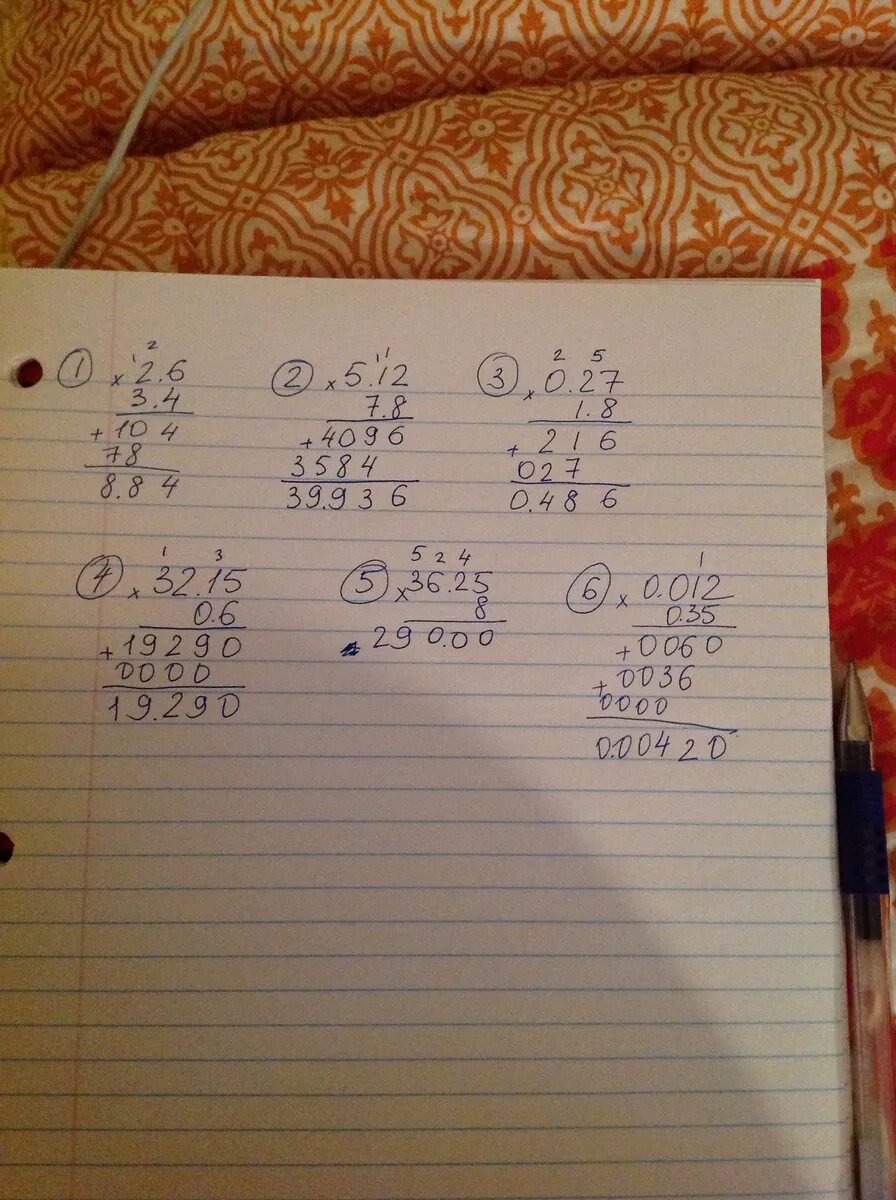 1 2
① × 2.6
3.4
+ 104
78
8.84
11
② × 5.12
7.8
+ 4096
3584
39.936
2 5
③ × 0.27
1.8
+ 216
027
0.486
1 3
④ × 32.15
0.6
+ 19290
0000
19.290
5 2 4
⑤ × 36.25
8
290.00
1
⑥ × 0.012
0.35
+ 0060
+ 0036
0000
0.00420